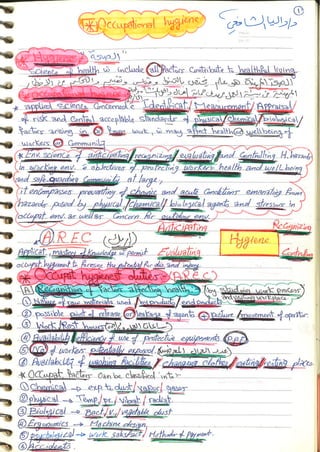 ① 
* Occupational hygiene
* Hygiene "الصحة"
Science of health & include all factors contribute to healthful living.
applied science concerned Identificat/Measurement/Appraisal
of risk and Control acceptable standards of physical/chemical/biological/
factors arising in or from work, & may affect health or wellbeing of
workers or Community
* Env. science of anticipating/recognizing/evaluating/and Controlling H. hazards
in working env. & objectives of protecting workers health and well being
and safe guarding community at large
it encompasses prevention of chronic and acute Conditions emanating from
hazards posed by physical/chemical/biological agents and stressors in
occupat. env. as well as Concern for outdoor env.
AREC
Anticipating
Recognizing
Hygiene
Applicat. mastery of Knowledge & permit
Evaluating
Controlling
occupat. hygienist to foresee the potential for dis. and injury
* Occupat. hygienest duties (AREC)
Recognition of factors affecting health by studying work process
① Nature of raw materials used / by products / end products
② possible point of release or leakage of agents + posture / movement of operator.
③ Work/Rest hours
④ Availability / efficiency / use of protective equipements PPE
⑤ of workers potentially exposed
⑥ Availability of washing facilities / changing clothes / eating/resting places
* Occupat. factors Can be classified into:-
① Chemical → exp. to dust / vapor / gases
② physical → Temp / Pr. / Vibrat. / radiat.
③ Biological → Bact. / V. / vegetable dust
④ Ergonomics → Machine design
⑤ psychological → work satisfact. / Methods of payment.
⑥ Accidents.